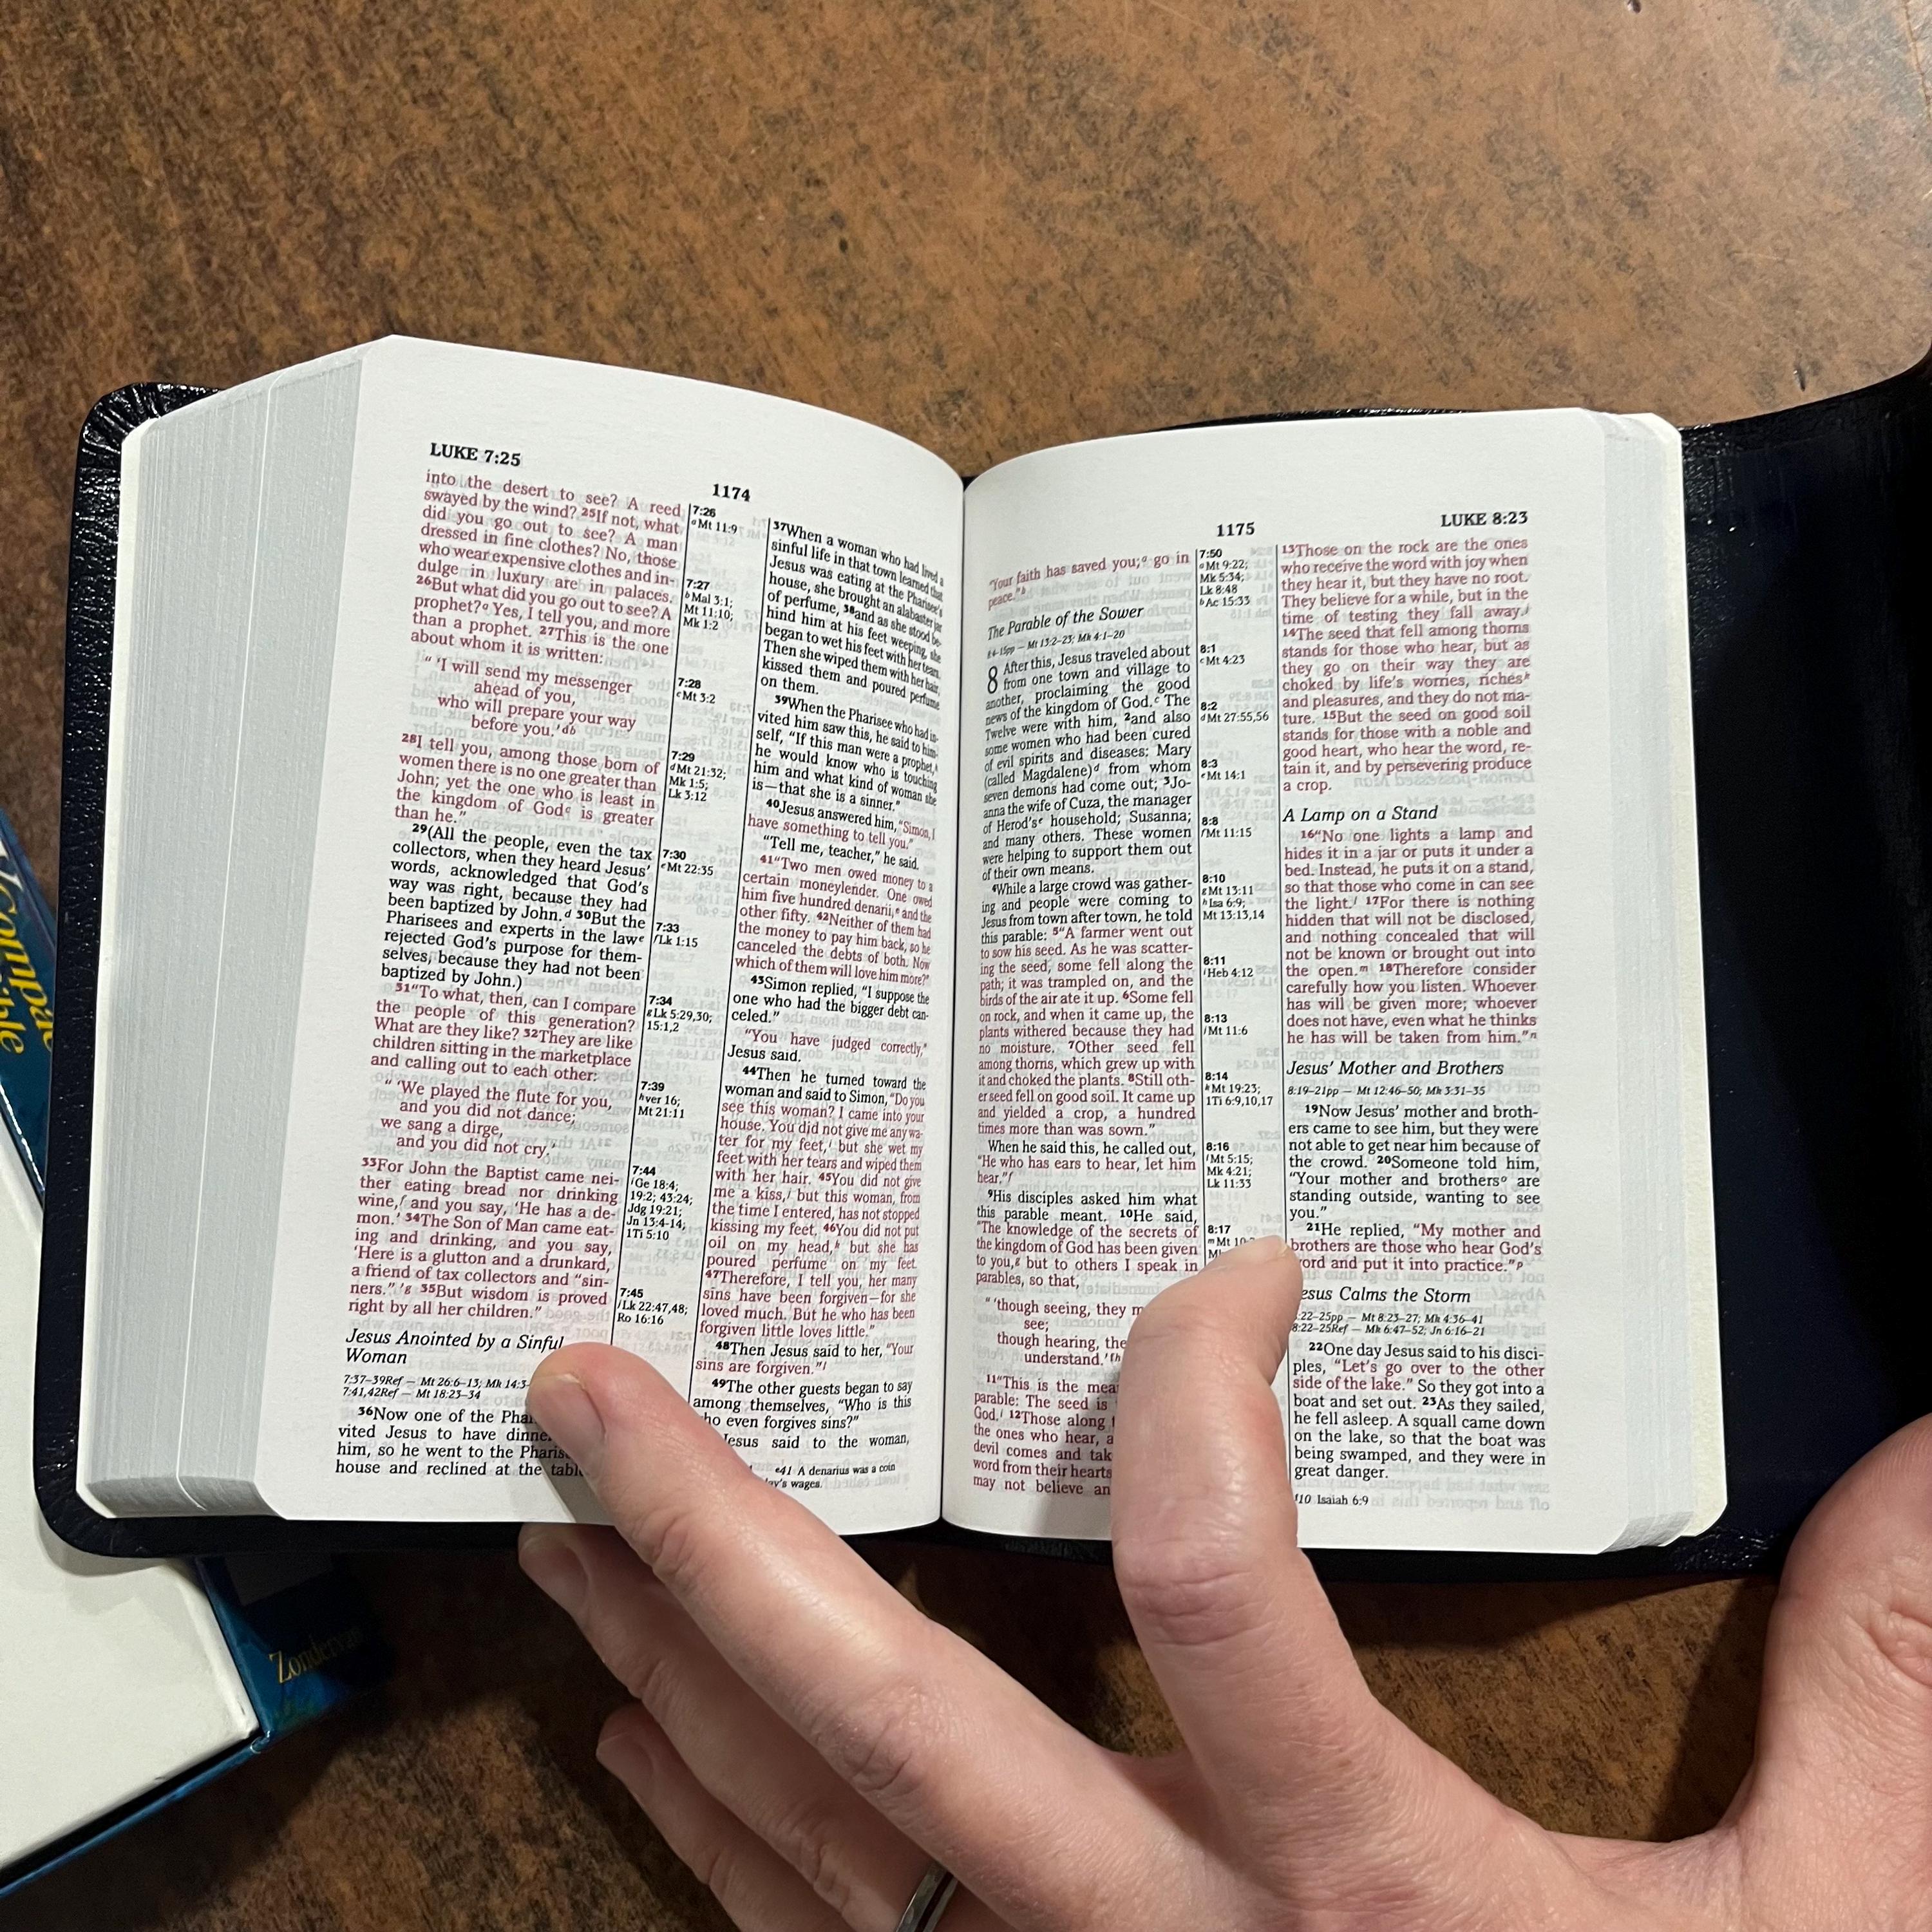 LUKE 7:25
1174
into the desert to see? A reed
swayed by the wind? 25If not, what
did you go out to see? A man
dressed in fine clothes? No, those
who wear expensive clothes and in-
dulge in luxury are in palaces.
26But what did you go out to see? A
prophet?a Yes, I tell you, and more
than a prophet. 27This is the one
about whom it is written:
“ ‘I will send my messenger
ahead of you,
who will prepare your way
before you.’db
28I tell you, among those born of
women there is no one greater than
John; yet the one who is least in
the kingdom of Godc is greater
than he.”
29(All the people, even the tax
collectors, when they heard Jesus’
words, acknowledged that God’s
way was right, because they had
been baptized by John.d 30But the
Pharisees and experts in the lawe
rejected God’s purpose for them-
selves, because they had not been
baptized by John.)
31“To what, then, can I compare
the people of this generation?
What are they like? 32They are like
children sitting in the marketplace
and calling out to each other:
“ ‘We played the flute for you,
and you did not dance;
we sang a dirge,
and you did not cry.’
33For John the Baptist came nei-
ther eating bread nor drinking
wine,f and you say, ‘He has a de-
mon.’ 34The Son of Man came eat-
ing and drinking, and you say,
‘Here is a glutton and a drunkard,
a friend of tax collectors and “sin-
ners.” ’g 35But wisdom is proved
right by all her children.”
Jesus Anointed by a Sinful
Woman
7:37–39Ref — Mt 26:6–13; Mk 14:3-
7:41,42Ref — Mt 18:23–34
36Now one of the Phar
vited Jesus to have dinne
him, so he went to the Pharis
house and reclined at the tabl
7:26
aMt 11:9
7:27
bMal 3:1;
Mt 11:10;
Mk 1:2
7:28
cMt 3:2
7:29
dMt 21:32;
Mk 1:5;
Lk 3:12
7:30
eMt 22:35
7:33
fLk 1:15
7:34
gLk 5:29,30;
15:1,2
7:39
hver 16;
Mt 21:11
7:44
iGe 18:4;
19:2; 43:24;
Jdg 19:21;
Jn 13:4-14;
1Ti 5:10
7:45
jLk 22:47,48;
Ro 16:16
37When a woman who had lived a
sinful life in that town learned that
Jesus was eating at the Pharisee’s
house, she brought an alabaster jar
of perfume, 38and as she stood be-
hind him at his feet weeping, she
began to wet his feet with her tears.
Then she wiped them with her hair,
kissed them and poured perfume
on them.
39When the Pharisee who had in-
vited him saw this, he said to him-
self, “If this man were a prophet,h
he would know who is touching
him and what kind of woman she
is—that she is a sinner.”
40Jesus answered him, “Simon, I
have something to tell you.”
“Tell me, teacher,” he said.
41“Two men owed money to a
certain moneylender. One owed
him five hundred denarii,e and the
other fifty. 42Neither of them had
the money to pay him back, so he
canceled the debts of both. Now
which of them will love him more?”
43Simon replied, “I suppose the
one who had the bigger debt can-
celed.”
“You have judged correctly,”
Jesus said.
44Then he turned toward the
woman and said to Simon, “Do you
see this woman? I came into your
house. You did not give me any wa-
ter for my feet,i but she wet my
feet with her tears and wiped them
with her hair. 45You did not give
me a kiss,j but this woman, from
the time I entered, has not stopped
kissing my feet. 46You did not put
oil on my head,k but she has
poured perfume on my feet.
47Therefore, I tell you, her many
sins have been forgiven—for she
loved much. But he who has been
forgiven little loves little.”
48Then Jesus said to her, “Your
sins are forgiven.”l
49The other guests began to say
among themselves, “Who is this
ho even forgives sins?”
Jesus said to the woman,
e41 A denarius was a coin
y’s wages.
1175
LUKE 8:23
“Your faith has saved you;a go in
peace.”b
The Parable of the Sower
8:4–15pp — Mt 13:2–23; Mk 4:1–20
8 After this, Jesus traveled about
from one town and village to
another, proclaiming the good
news of the kingdom of God.c The
Twelve were with him, 2and also
some women who had been cured
of evil spirits and diseases: Mary
(called Magdalene)d from whom
seven demons had come out; 3Jo-
anna the wife of Cuza, the manager
of Herod’se household; Susanna;
and many others. These women
were helping to support them out
of their own means.
4While a large crowd was gather-
ing and people were coming to
Jesus from town after town, he told
this parable: 5“A farmer went out
to sow his seed. As he was scatter-
ing the seed, some fell along the
path; it was trampled on, and the
birds of the air ate it up. 6Some fell
on rock, and when it came up, the
plants withered because they had
no moisture. 7Other seed fell
among thorns, which grew up with
it and choked the plants. 8Still oth-
er seed fell on good soil. It came up
and yielded a crop, a hundred
times more than was sown.”
When he said this, he called out,
“He who has ears to hear, let him
hear.”f
9His disciples asked him what
this parable meant. 10He said,
“The knowledge of the secrets of
the kingdom of God has been given
to you,g but to others I speak in
parables, so that,
“ ‘though seeing, they m
see;
though hearing, the
understand.’fh
11“This is the mea
parable: The seed is
God.i 12Those along t
the ones who hear, a
devil comes and tak
word from their hearts
may not believe an
7:50
aMt 9:22;
Mk 5:34;
Lk 8:48
bAc 15:33
8:1
cMt 4:23
8:2
dMt 27:55,56
8:3
eMt 14:1
8:8
fMt 11:15
8:10
gMt 13:11
hIsa 6:9;
Mt 13:13,14
8:11
iHeb 4:12
8:13
jMt 11:6
8:14
kMt 19:23;
1Ti 6:9,10,17
8:16
lMt 5:15;
Mk 4:21;
Lk 11:33
8:17
mMt 10:
13Those on the rock are the ones
who receive the word with joy when
they hear it, but they have no root.
They believe for a while, but in the
time of testing they fall away.j
14The seed that fell among thorns
stands for those who hear, but as
they go on their way they are
choked by life’s worries, richesk
and pleasures, and they do not ma-
ture. 15But the seed on good soil
stands for those with a noble and
good heart, who hear the word, re-
tain it, and by persevering produce
a crop.
A Lamp on a Stand
16“No one lights a lamp and
hides it in a jar or puts it under a
bed. Instead, he puts it on a stand,
so that those who come in can see
the light.l 17For there is nothing
hidden that will not be disclosed,
and nothing concealed that will
not be known or brought out into
the open.m 18Therefore consider
carefully how you listen. Whoever
has will be given more; whoever
does not have, even what he thinks
he has will be taken from him.”n
Jesus’ Mother and Brothers
8:19–21pp — Mt 12:46–50; Mk 3:31–35
19Now Jesus’ mother and broth-
ers came to see him, but they were
not able to get near him because of
the crowd. 20Someone told him,
“Your mother and brotherso are
standing outside, wanting to see
you.”
21He replied, “My mother and
brothers are those who hear God’s
ord and put it into practice.”p
esus Calms the Storm
:22–25pp — Mt 8:23–27; Mk 4:36–41
8:22–25Ref — Mk 6:47–52; Jn 6:16–21
22One day Jesus said to his disci-
ples, “Let’s go over to the other
side of the lake.” So they got into a
boat and set out. 23As they sailed,
he fell asleep. A squall came down
on the lake, so that the boat was
being swamped, and they were in
great danger.
f10 Isaiah 6:9
Zondervan